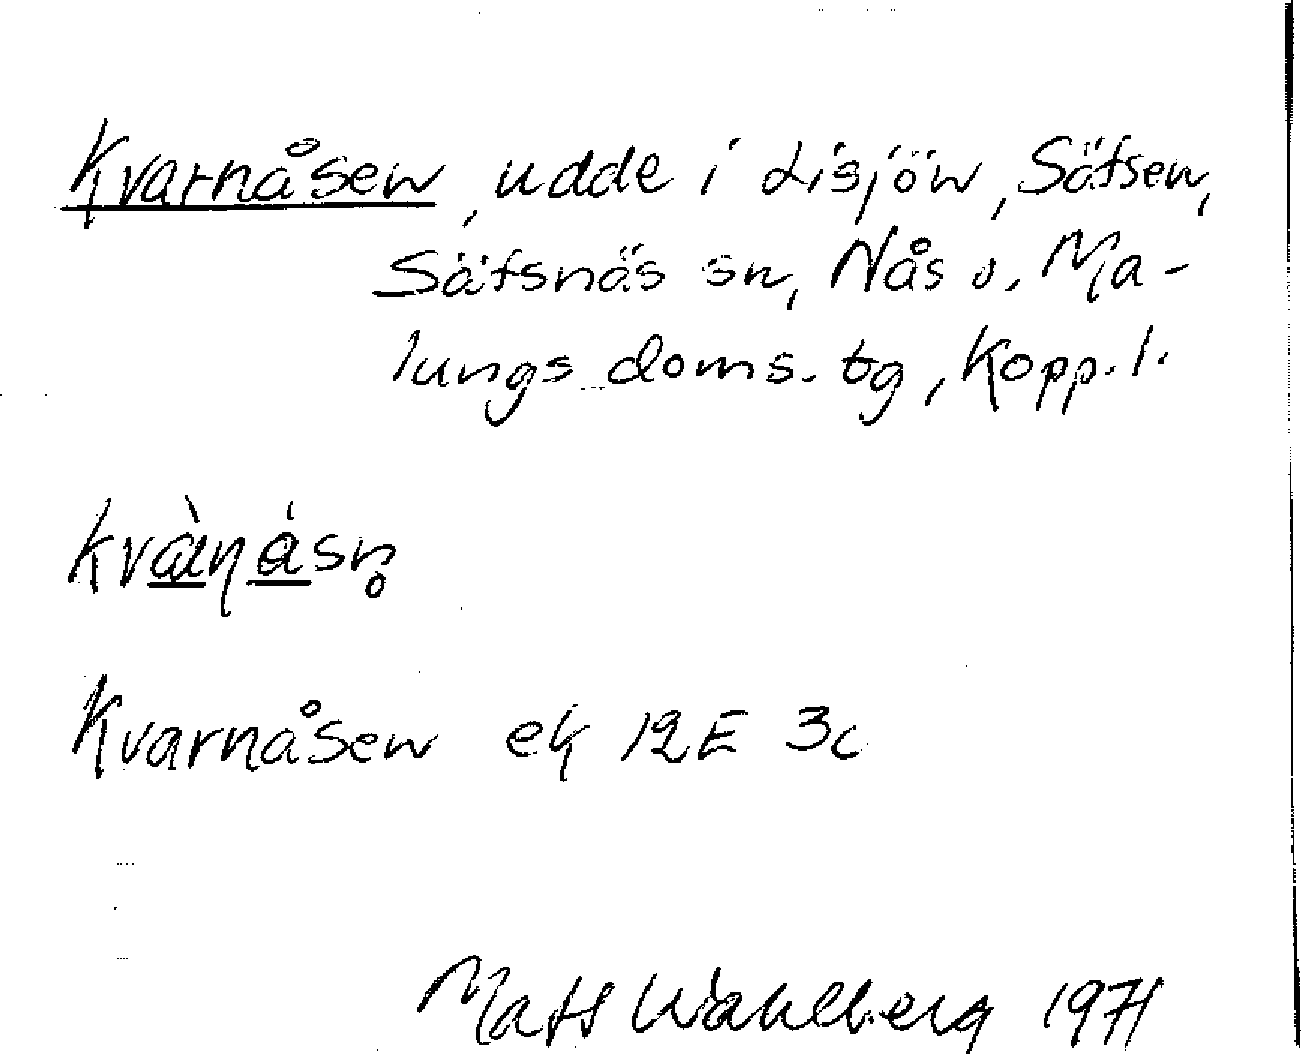 Kvarnåsen, udde i Lisjön, Säfsen,
Säfsnäs sn, Nås o. Ma-
lungs doms. tg, Kopp. l.
Kvarnåsen ek 12E 3c
Mats Wahlberg 1971